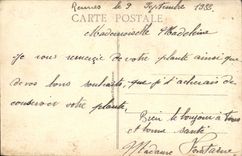 Rennes le 9 Septembre 1938.
CARTE POSTALE
Mademoiselle Madeleine
Je vous remercie de votre plante ainsi que
de vos bons souhaits, que je
conserver votre plante.
Bien le bonjour à tous
et bonne santé
Madame